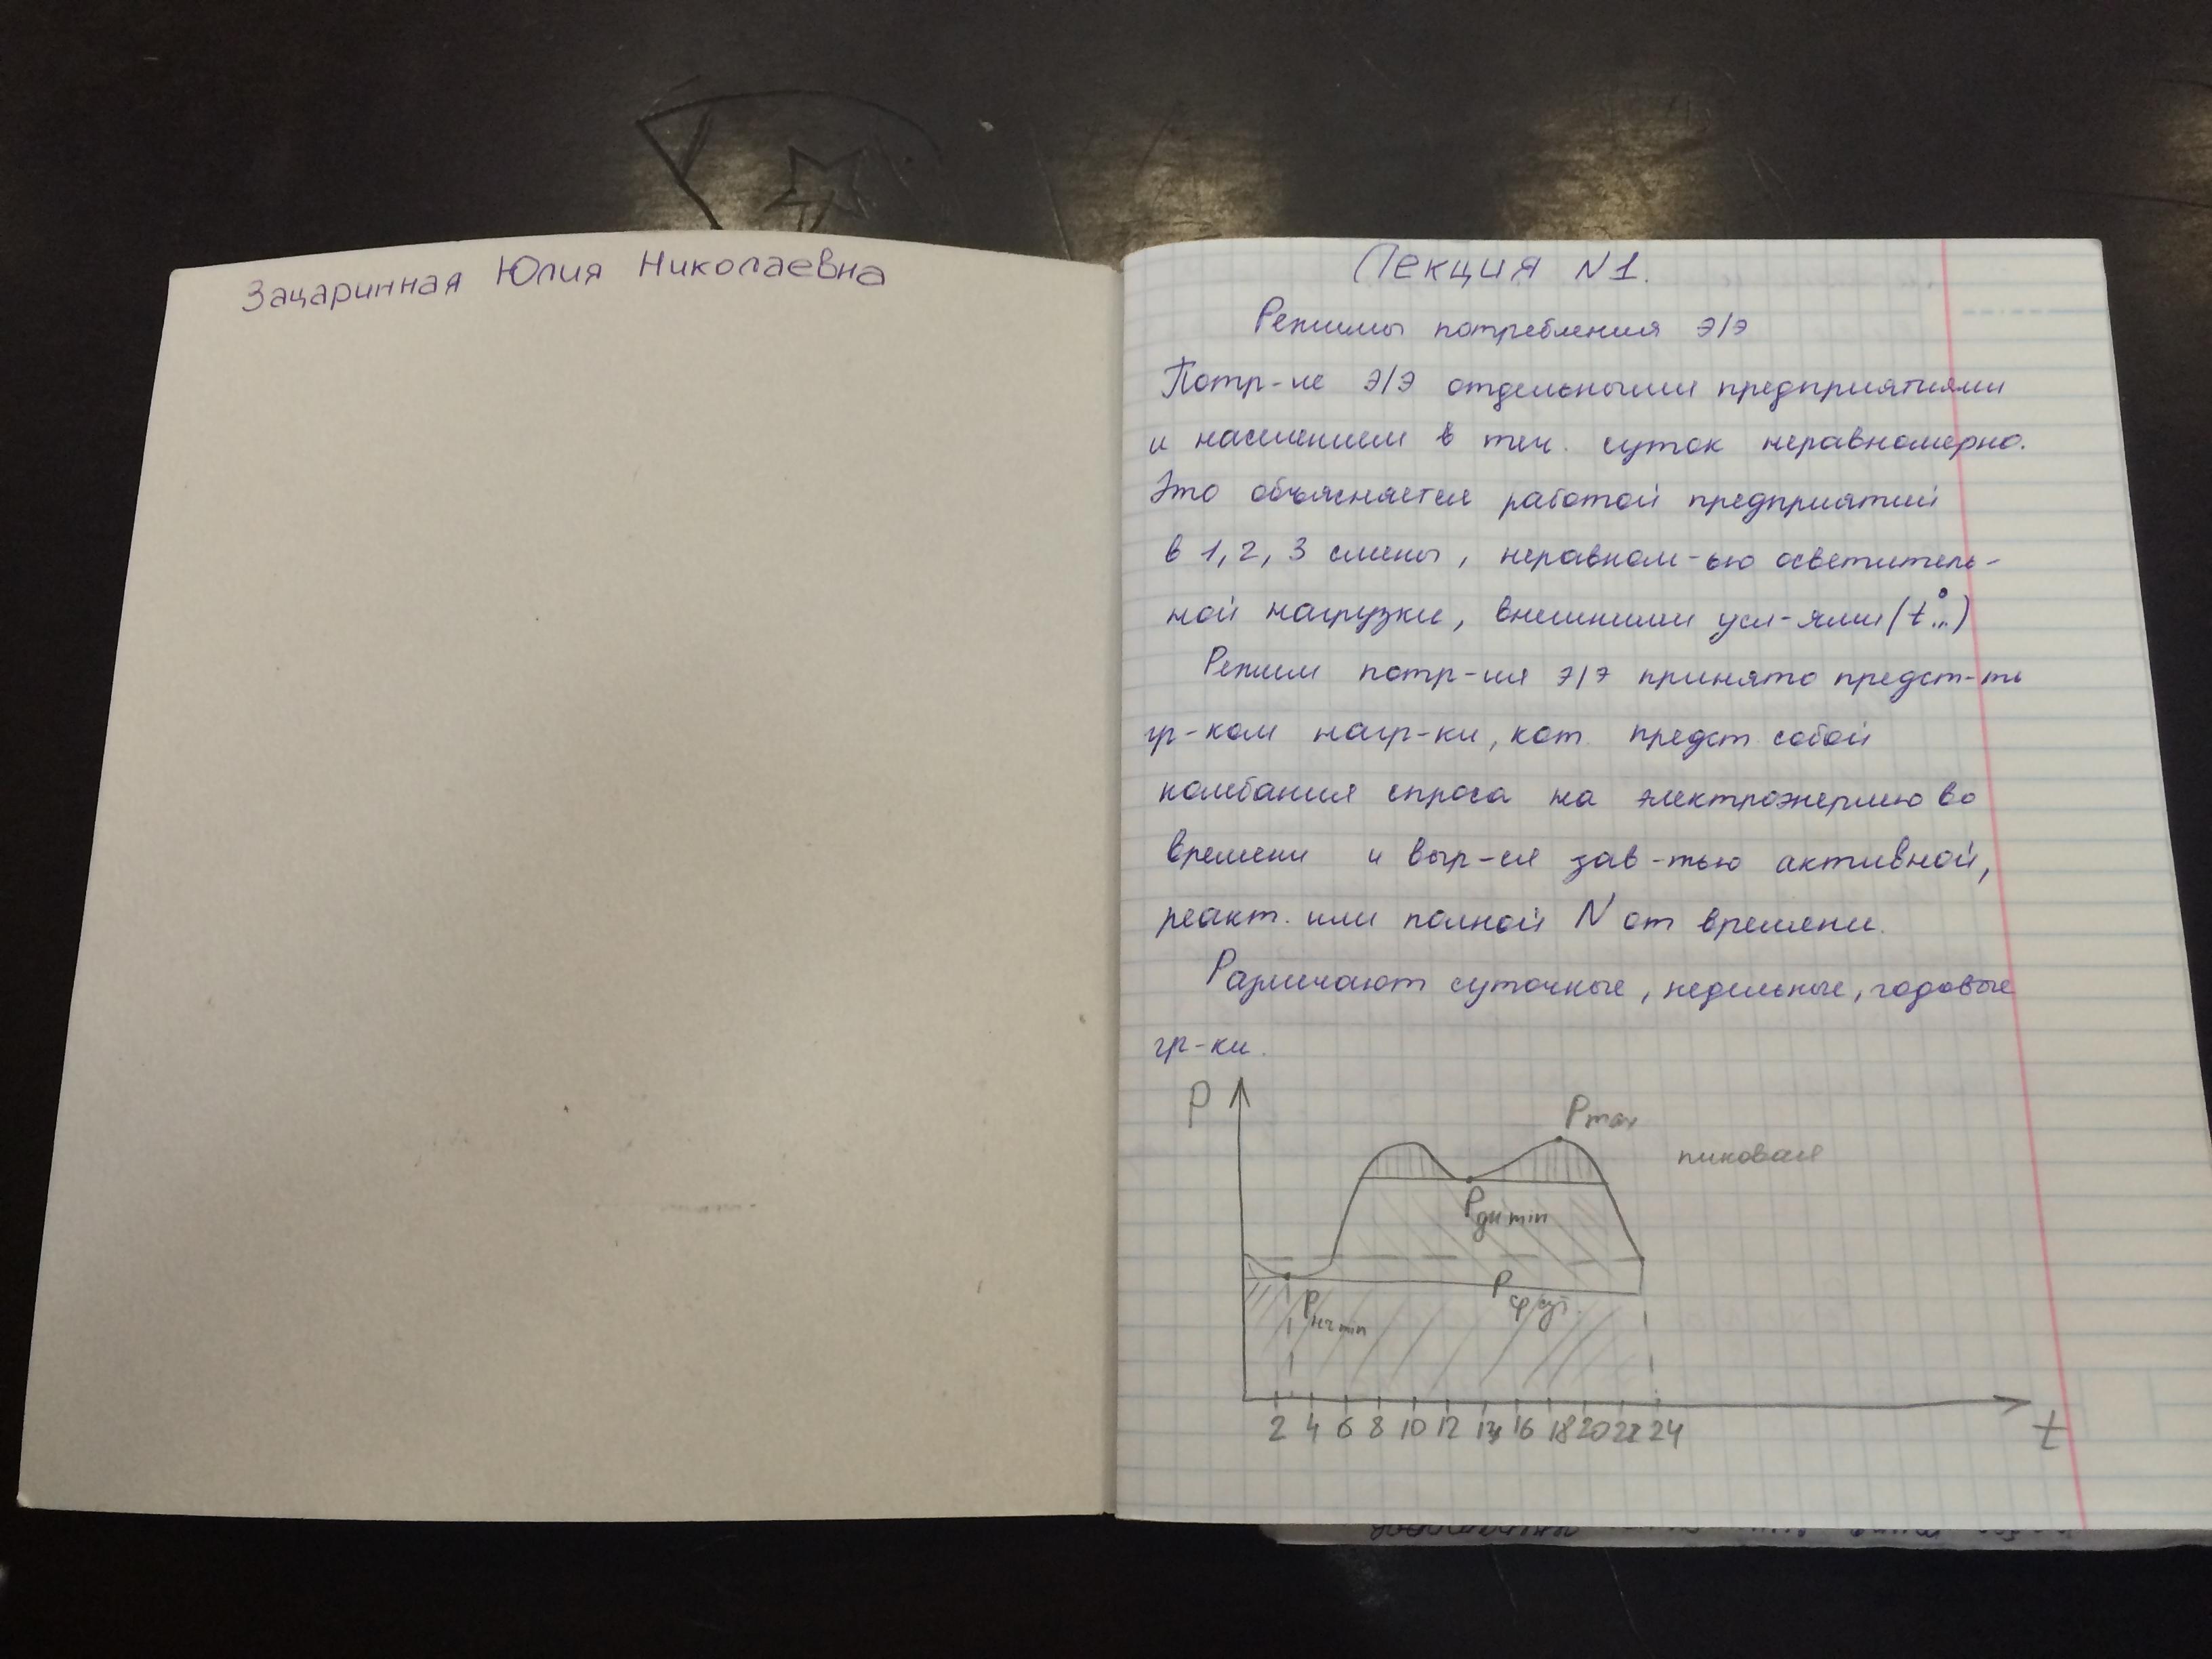 Зацаринная Юлия Николаевна
Лекция N1.
Режимы потребления э/э
Потр-ие э/э отдельными предприятиями
и населением в теч. суток неравномерно.
Это объясняется работой предприятий
в 1, 2, 3 смены, неравном-ью осветитель-
ной нагрузки, внешними усл-ями (t°...)
Режим потр-ия э/э принято предст-ть
гр-ком нагр-ки, кот. предст. собой
колебания спроса на электроэнергию во
времени и выр-ся зав-тью активной,
реакт. или полной N от времени.
Различают суточные, недельные, годовые
гр-ки.
P
Pmax
пиковая
Pдн min
Pср сут.
Pнч min
2 4 6 8 10 12 14 16 18 20 22 24
t